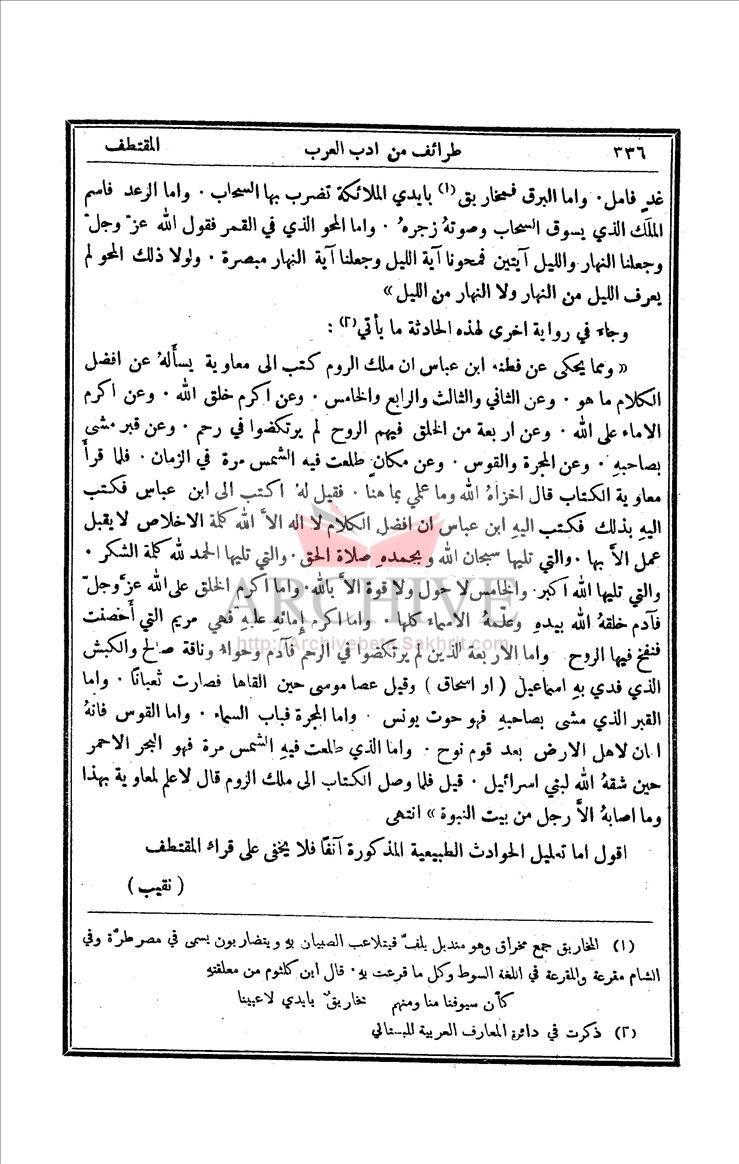 ٣٣٦ طرائف من ادب العرب المقتطف
غدٍ فامل. واما البرق فمخاريق (١) بايدي الملائكة تضرب بها السحاب. واما الرعد فاسم
الملَك الذي يسوق السحاب وصوتهُ زجرهُ. واما المحو الذي في القمر فقول الله عزّ وجلّ
وجعلنا النهار والليل آيتين فمحونا آية الليل وجعلنا آية النهار مبصرة. ولولا ذلك المحو لم
يعرف الليل من النهار ولا النهار من الليل»
وجاء في رواية اخرى لهذه الحادثة ما يأتي (٢) :
« ومما يحكى عن فطنة ابن عباس ان ملك الروم كتب الى معاوية يسألهُ عن افضل
الكلام ما هو. وعن الثاني والثالث والرابع والخامس. وعن اكرم خلق الله. وعن اكرم
الاماء على الله. وعن اربعة من الخلق فيهم الروح لم يرتكضوا في رحم. وعن قبر مشى
بصاحبهِ. وعن المجرة والقوس. وعن مكانٍ طلعت فيه الشمس مرة في الزمان. فلما قرأ
معاوية الكتاب قال اخزاهُ الله وما علمي بما هنا. فقيل لهُ اكتب الى ابن عباس فكتب
اليهِ بذلك فكتب اليهِ ابن عباس ان افضل الكلام لا اله الاَّ الله كلمة الاخلاص لا يقبل
عمل الاَّ بها. والتي تليها سبحان الله وبحمدهِ صلاة الحق. والتي تليها الحمد لله كلمة الشكر.
والتي تليها الله اكبر. والخامس لا حول ولا قوة الاَّ بالله. واما اكرم الخلق على الله عزَّ وجلّ
فآدم خلقهُ الله بيدهِ وعلمهُ الاسماء كلها. واما اكرم إِمائهِ عليهِ فهي مريم التي أحصنت
فنفخ فيها الروح واما الاربعة الذين لم يرتكضوا في الرحم فآدم وحواء وناقة صالح والكبش
الذي فدي بهِ اسماعيل ( او اسحاق ) وقيل عصا موسى حين القاها فصارت ثعبانًا. واما
القبر الذي مشى بصاحبهِ فهو حوت يونس. واما المجرة فباب السماء. واما القوس فانهُ
امان لاهل الارض بعد قوم نوح. واما الذي طلعت فيهِ الشمس مرة فهو البحر الاحمر
حين شقهُ الله لبني اسرائيل. قيل فلما وصل الكتاب الى ملك الروم قال لاعلم لمعاوية بهذا
وما اصابهُ الاَّ رجل من بيت النبوة » انتهى
اقول اما تعليل الحوادث الطبيعية المذكورة آنفًا فلا يخفى على قراء المقتطف
( نقيب )
(١) المخاريق جمع مخراق وهو منديل يلفّ فيتلاعب الصبيان بهِ ويتضاربون يسمى في مصر طرَّة وفي
الشام مقرعة والمقرعة في اللغة السوط وكل ما قرعت بهِ. قال ابن كلثوم من معلقتهِ
كأن سيوفنا منا ومنهم مخاريقٌ بايدي لاعبينا
(٢) ذكرت في دائرة المعارف العربية للبستاني
ARCHIVE
http://Archivebeta.Sakhrit.com